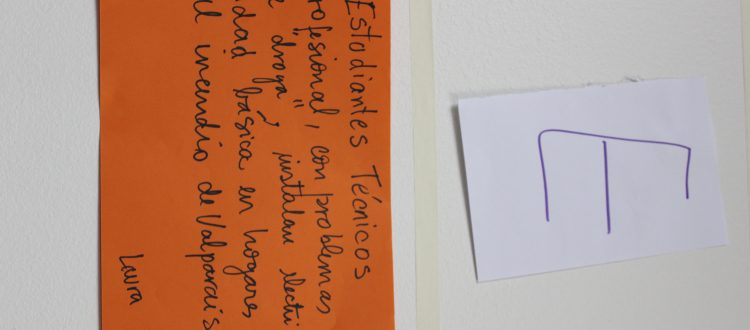 Estudiantes Técnicos
rofesional, con problemas
e "droga", instalan electri
idad básica en hogares
el incendio de Valparaís
Laura
E